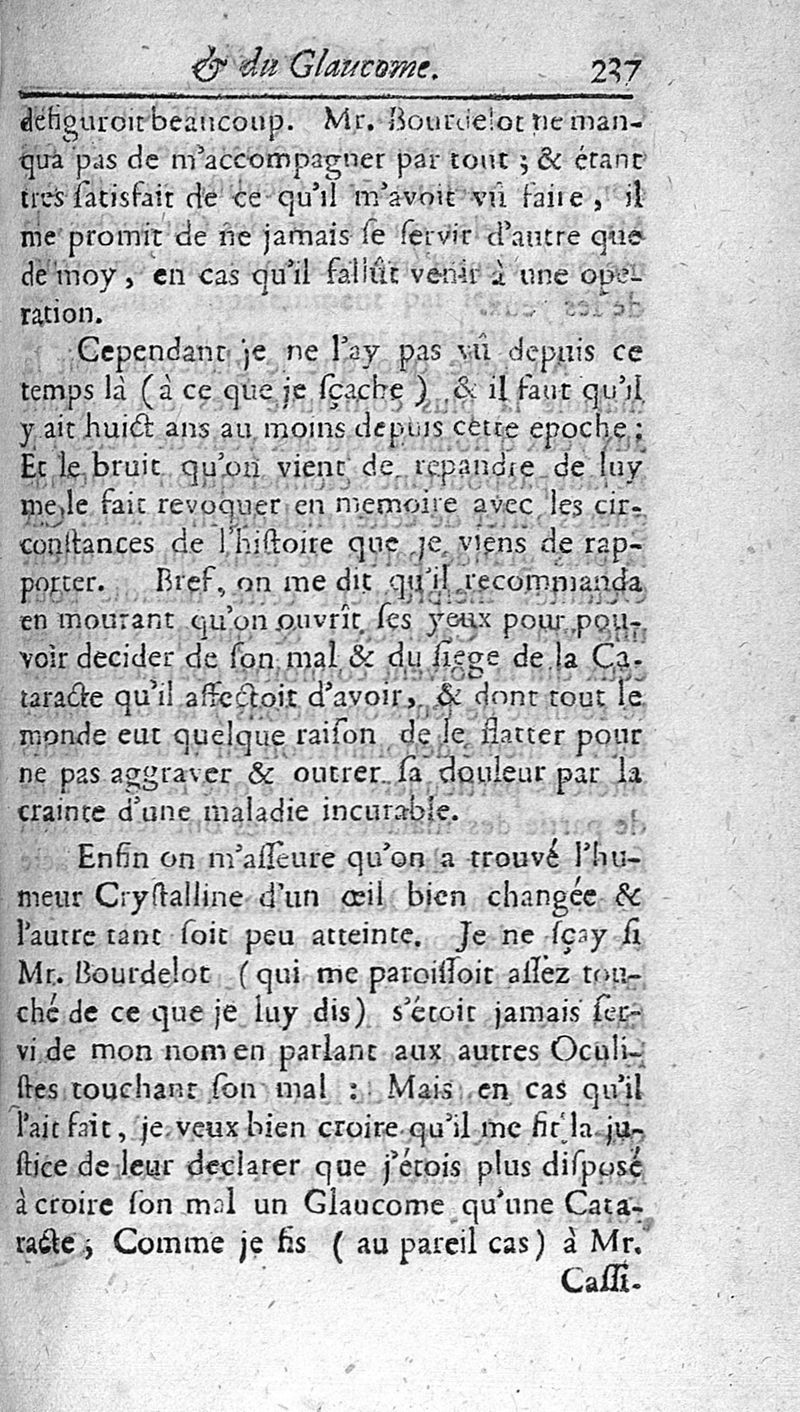 & du Glaucome. 237
défiguroit beaucoup. Mr. Bourdelot ne man-
qua pas de m'accompagner par tout ; & étant
tres ſatisfait de ce qu'il m'avoit vû faire , il
me promit de ne jamais ſe ſervir d'autre que
de moy , en cas qu'il fallût venir à une ope-
ration.
Cependant je ne l'ay pas vû depuis ce
temps là ( à ce que je ſçache ) & il faut qu'il
y ait huict ans au moins depuis cette epoche ;
Et le bruit qu'on vient de repandre de luy
me le fait revoquer en memoire avec les cir-
conſtances de l'hiſtoire que je viens de rap-
porter. Bref, on me dit qu'il recommanda
en mourant qu'on ouvrît ſes yeux pour pou-
voir decider de ſon mal & du ſiege de la Ca-
taracte qu'il affectoit d'avoir, & dont tout le
monde eut quelque raiſon de le flatter pour
ne pas aggraver & outrer ſa douleur par la
crainte d'une maladie incurable.
Enfin on m'aſſeure qu'on a trouvé l'hu-
meur Cryſtalline d'un œil bien changée &
l'autre tant ſoit peu atteinte. Je ne ſçay ſi
Mr. Bourdelot ( qui me paroiſſoit aſſez tou-
ché de ce que je luy dis) s'étoit jamais ſer-
vi de mon nom en parlant aux autres Oculi-
ſtes touchant ſon mal : Mais en cas qu'il
l'ait fait , je veux bien croire qu'il me fit la ju-
ſtice de leur declarer que j'étois plus diſposé
à croire ſon mal un Glaucome qu'une Cata-
racte ; Comme je fis ( au pareil cas) à Mr.
Caſſi-